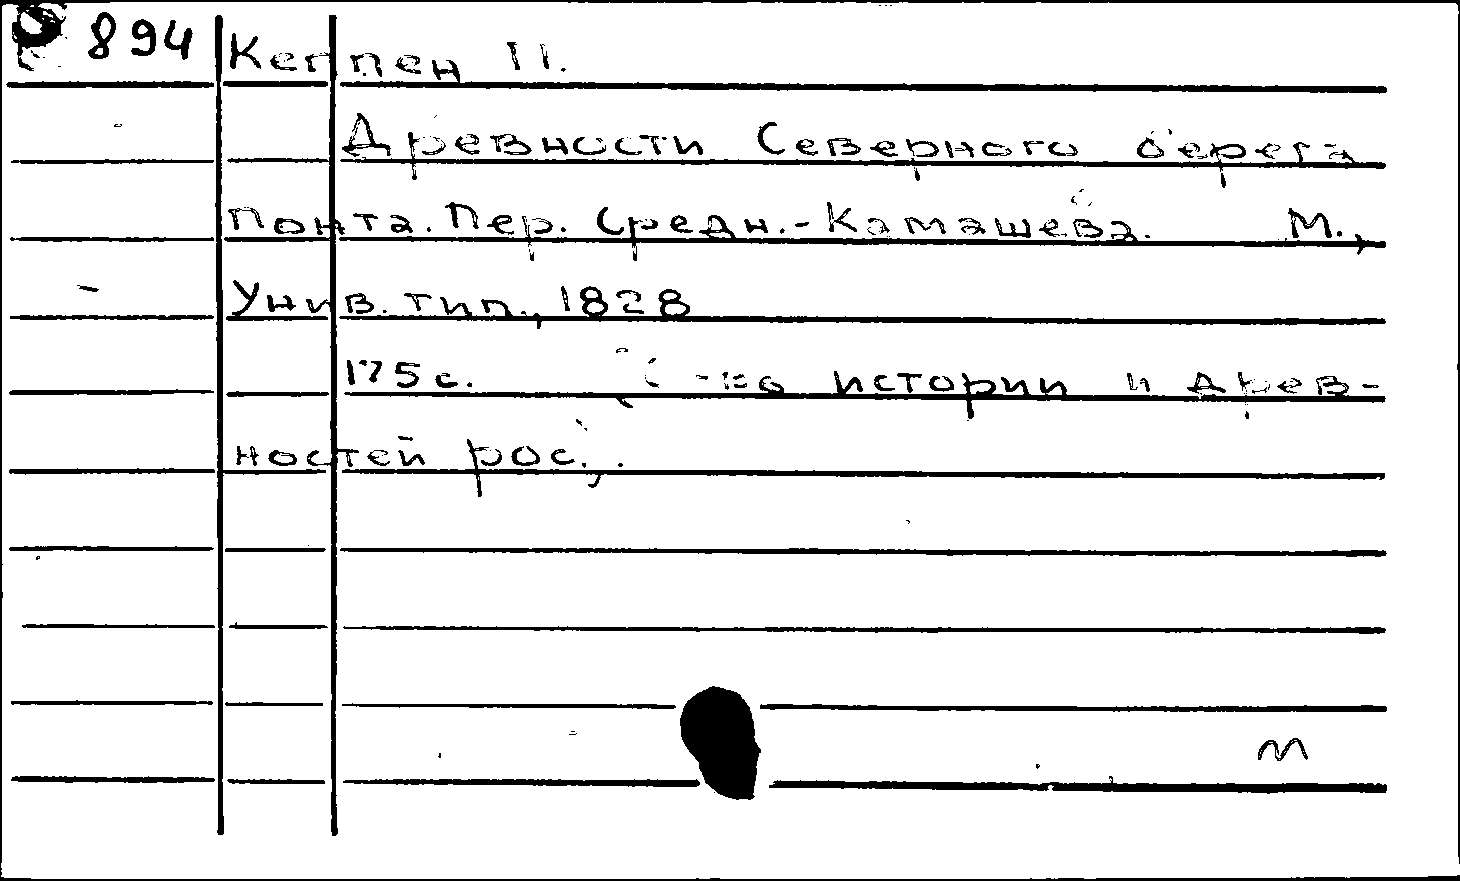 894 Кеппен П.
Древности Северного берега
Понта. Пер. Средн.-Камашева. М.,
Унив. тип., 1828
175 с. (О-во истории и древ-
ностей рос.).
т